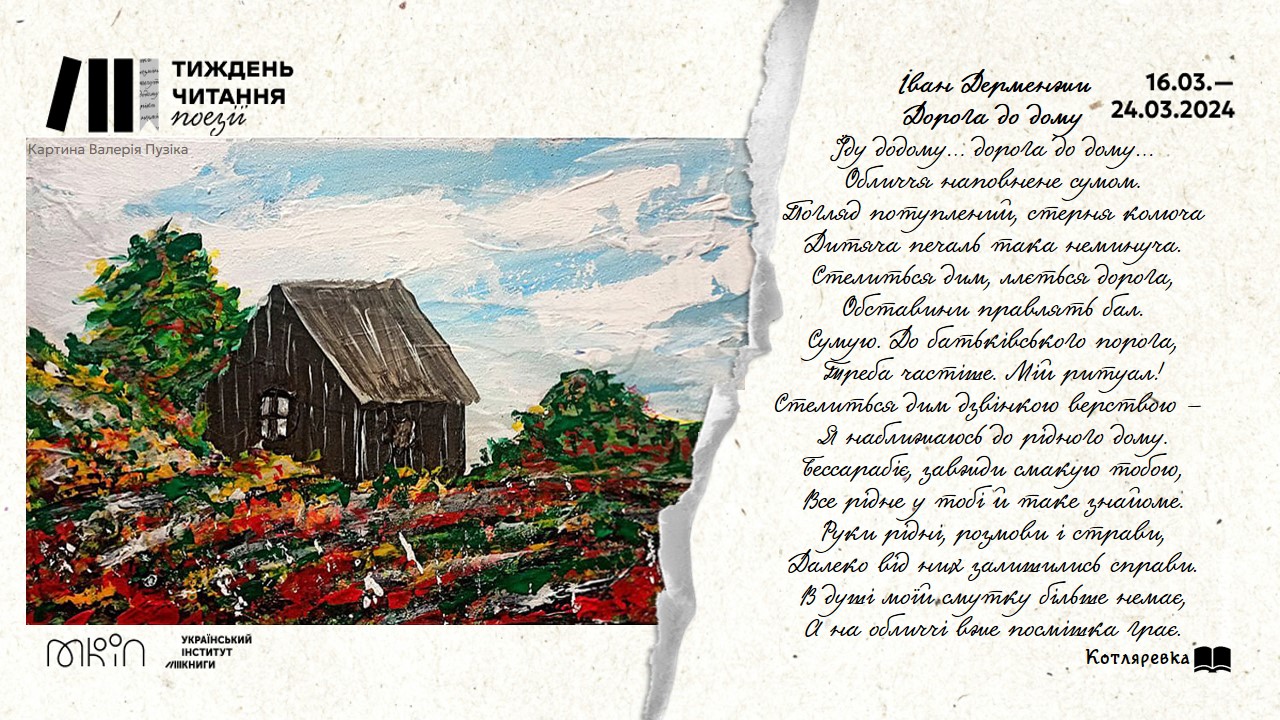 ТИЖДЕНЬ
ЧИТАННЯ
поезії
Картина Валерія Пузіка
Іван Дерменжи
Дорога до дому
16.03.—
24.03.2024
Їду додому... дорога до дому...
Обличчя наповнене сумом.
Погляд потуплений, стерня колюча
Дитяча печаль така неминуча.
Стелиться дим, ллється дорога,
Обставини правлять бал.
Сумую. До батьківського порога,
Треба частіше. Мій ритуал!
Стелиться дим дзвінкою верствою –
Я наближаюсь до рідного дому.
Бессарабіє, завжди смакую тобою,
Все рідне у тобі й таке знайоме.
Руки рідні, розмови і страви,
Далеко від них залишились справи.
В душі моїй смутку більше немає,
А на обличчі вже посмішка грає.
Котляревка
МКІП
УКРАЇНСЬКИЙ
ІНСТИТУТ
КНИГИ